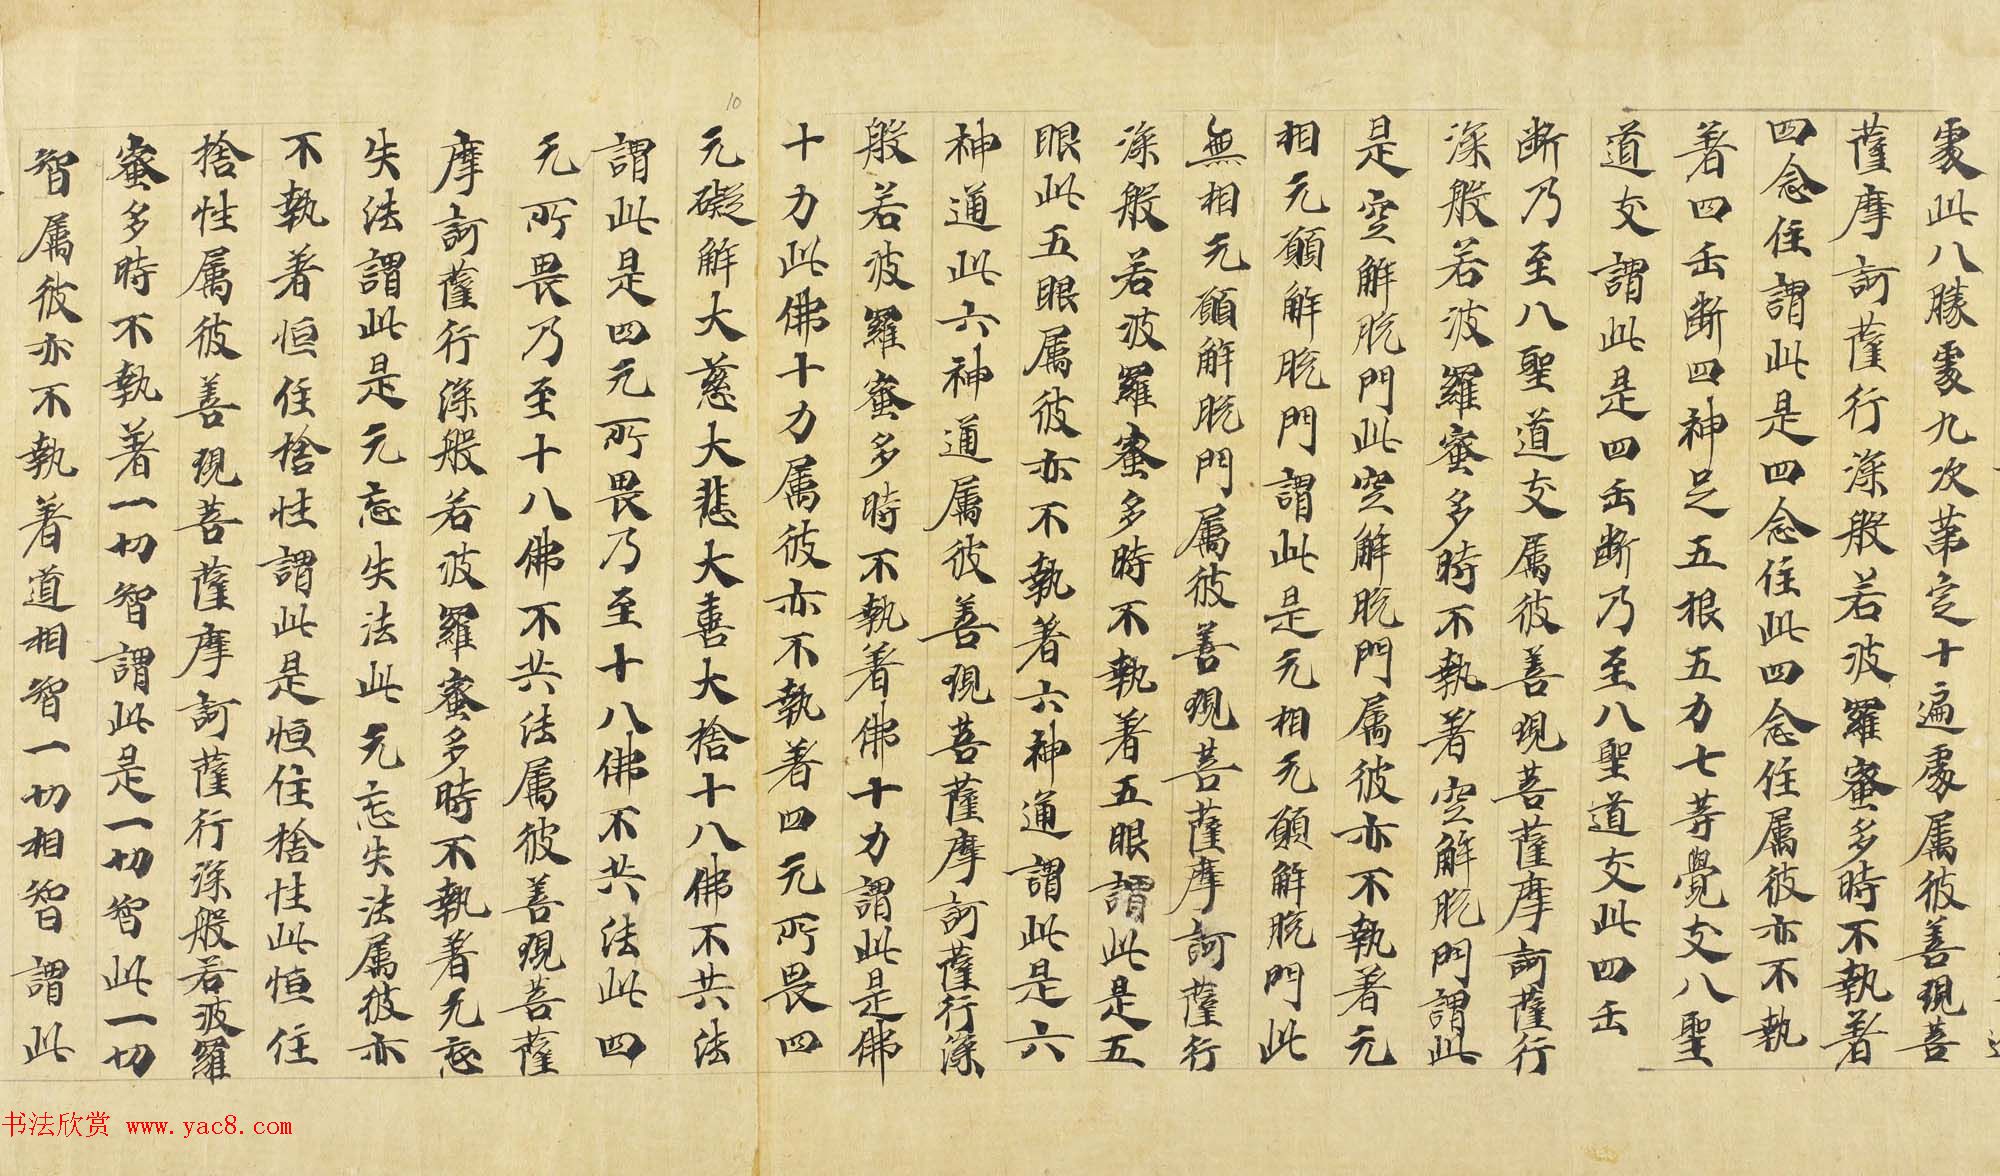 處此八勝處九次第定十遍處属彼善現菩
薩摩訶薩行深般若波羅蜜多時不執著
四念住謂此是四念住此四念住属彼亦不執
著四正断四神足五根五力七等覺支八聖
道支謂此是四正断乃至八聖道支此四正
断乃至八聖道支属彼善現菩薩摩訶薩行
深般若波羅蜜多時不執著空解脫門謂此
是空解脫門此空解脫門属彼亦不執著无
相无願解脫門謂此是无相无願解脫門此
無相无願解脫門属彼善現菩薩摩訶薩行
深般若波羅蜜多時不執著五眼謂此是五
眼此五眼属彼亦不執著六神通謂此是六
神通此六神通属彼善現菩薩摩訶薩行深
般若波羅蜜多時不執著佛十力謂此是佛
十力此佛十力属彼亦不執著四无所畏四
10
无礙解大慈大悲大喜大捨十八佛不共法
謂此是四无所畏乃至十八佛不共法此四
无所畏乃至十八佛不共法属彼善現菩薩
摩訶薩行深般若波羅蜜多時不執著无忘
失法謂此是无忘失法此无忘失法属彼亦
不執著恒住捨性謂此是恒住捨性此恒住
捨性属彼善現菩薩摩訶薩行深般若波羅
蜜多時不執著一切智謂此是一切智此一切
智属彼亦不執著道相智一切相智謂此
书法欣赏 www.yac8.com